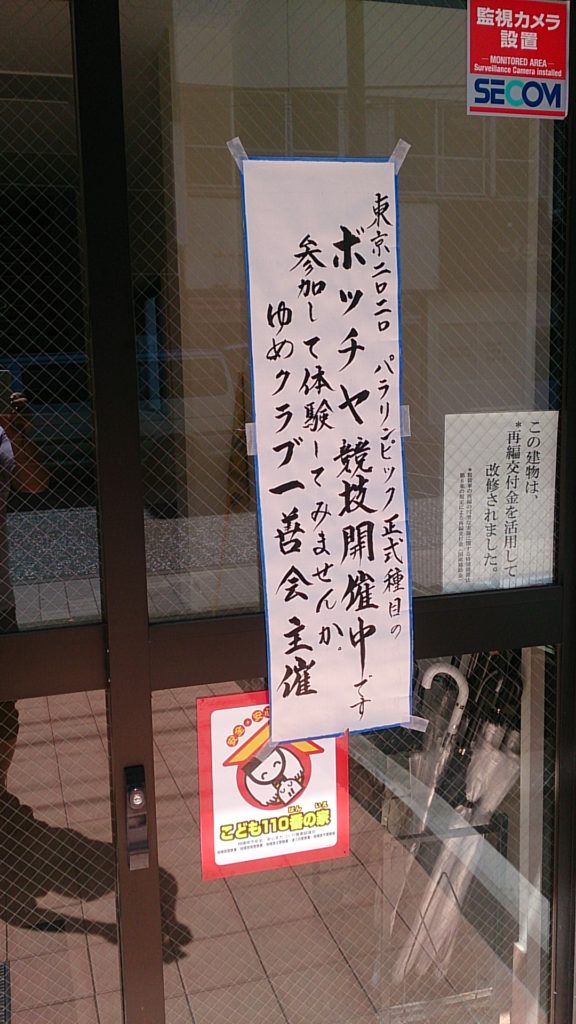 監視カメラ
設置
MONITORED AREA
Surveillance Camera Installed
SECOM
東京二〇二〇 パラリンピック正式種目の
ボッチヤ競技開催中です
参加して体験してみませんか。
ゆめクラブ一善会主催
この建物は、
*再編交付金を活用して
改修されました。
こども110番の家
ばん いえ